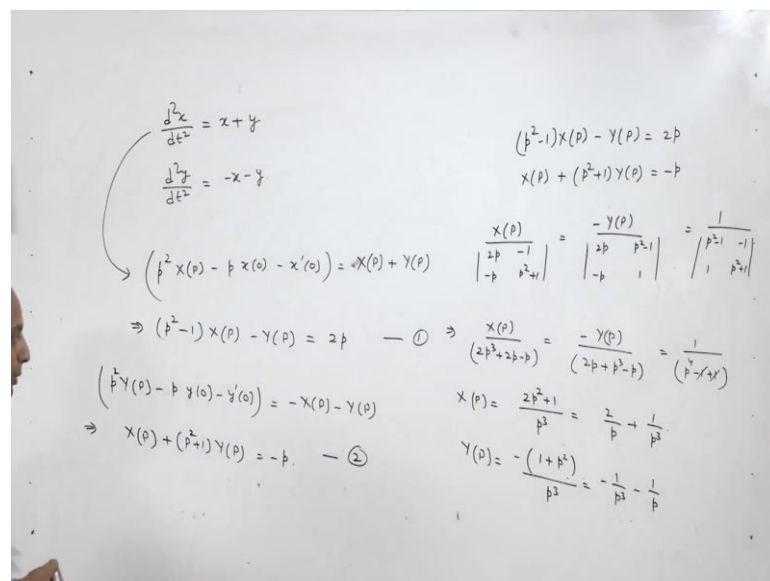 d²x/dt² = x + y
d²y/dt² = -x - y
(p² X(p) - p x(0) - x'(0)) = X(p) + Y(p)
⇒ (p²-1) X(p) - Y(p) = 2p — ①
(p² Y(p) - p y(0) - y'(0)) = -X(p) - Y(p)
⇒ X(p) + (p²+1) Y(p) = -p. — ②
(p²-1) X(p) - Y(p) = 2p
X(p) + (p²+1) Y(p) = -p
X(p) / |2p -1; -p p²+1| = -Y(p) / |2p p²-1; -p 1| = 1 / |p²-1 -1; 1 p²+1|
⇒ X(p) / (2p³+2p-p) = -Y(p) / (2p+p³-p) = 1 / (p⁴-1+1)
X(p) = (2p²+1) / p³ = 2/p + 1/p³
Y(p) = -(1+p²) / p³ = -1/p³ - 1/p